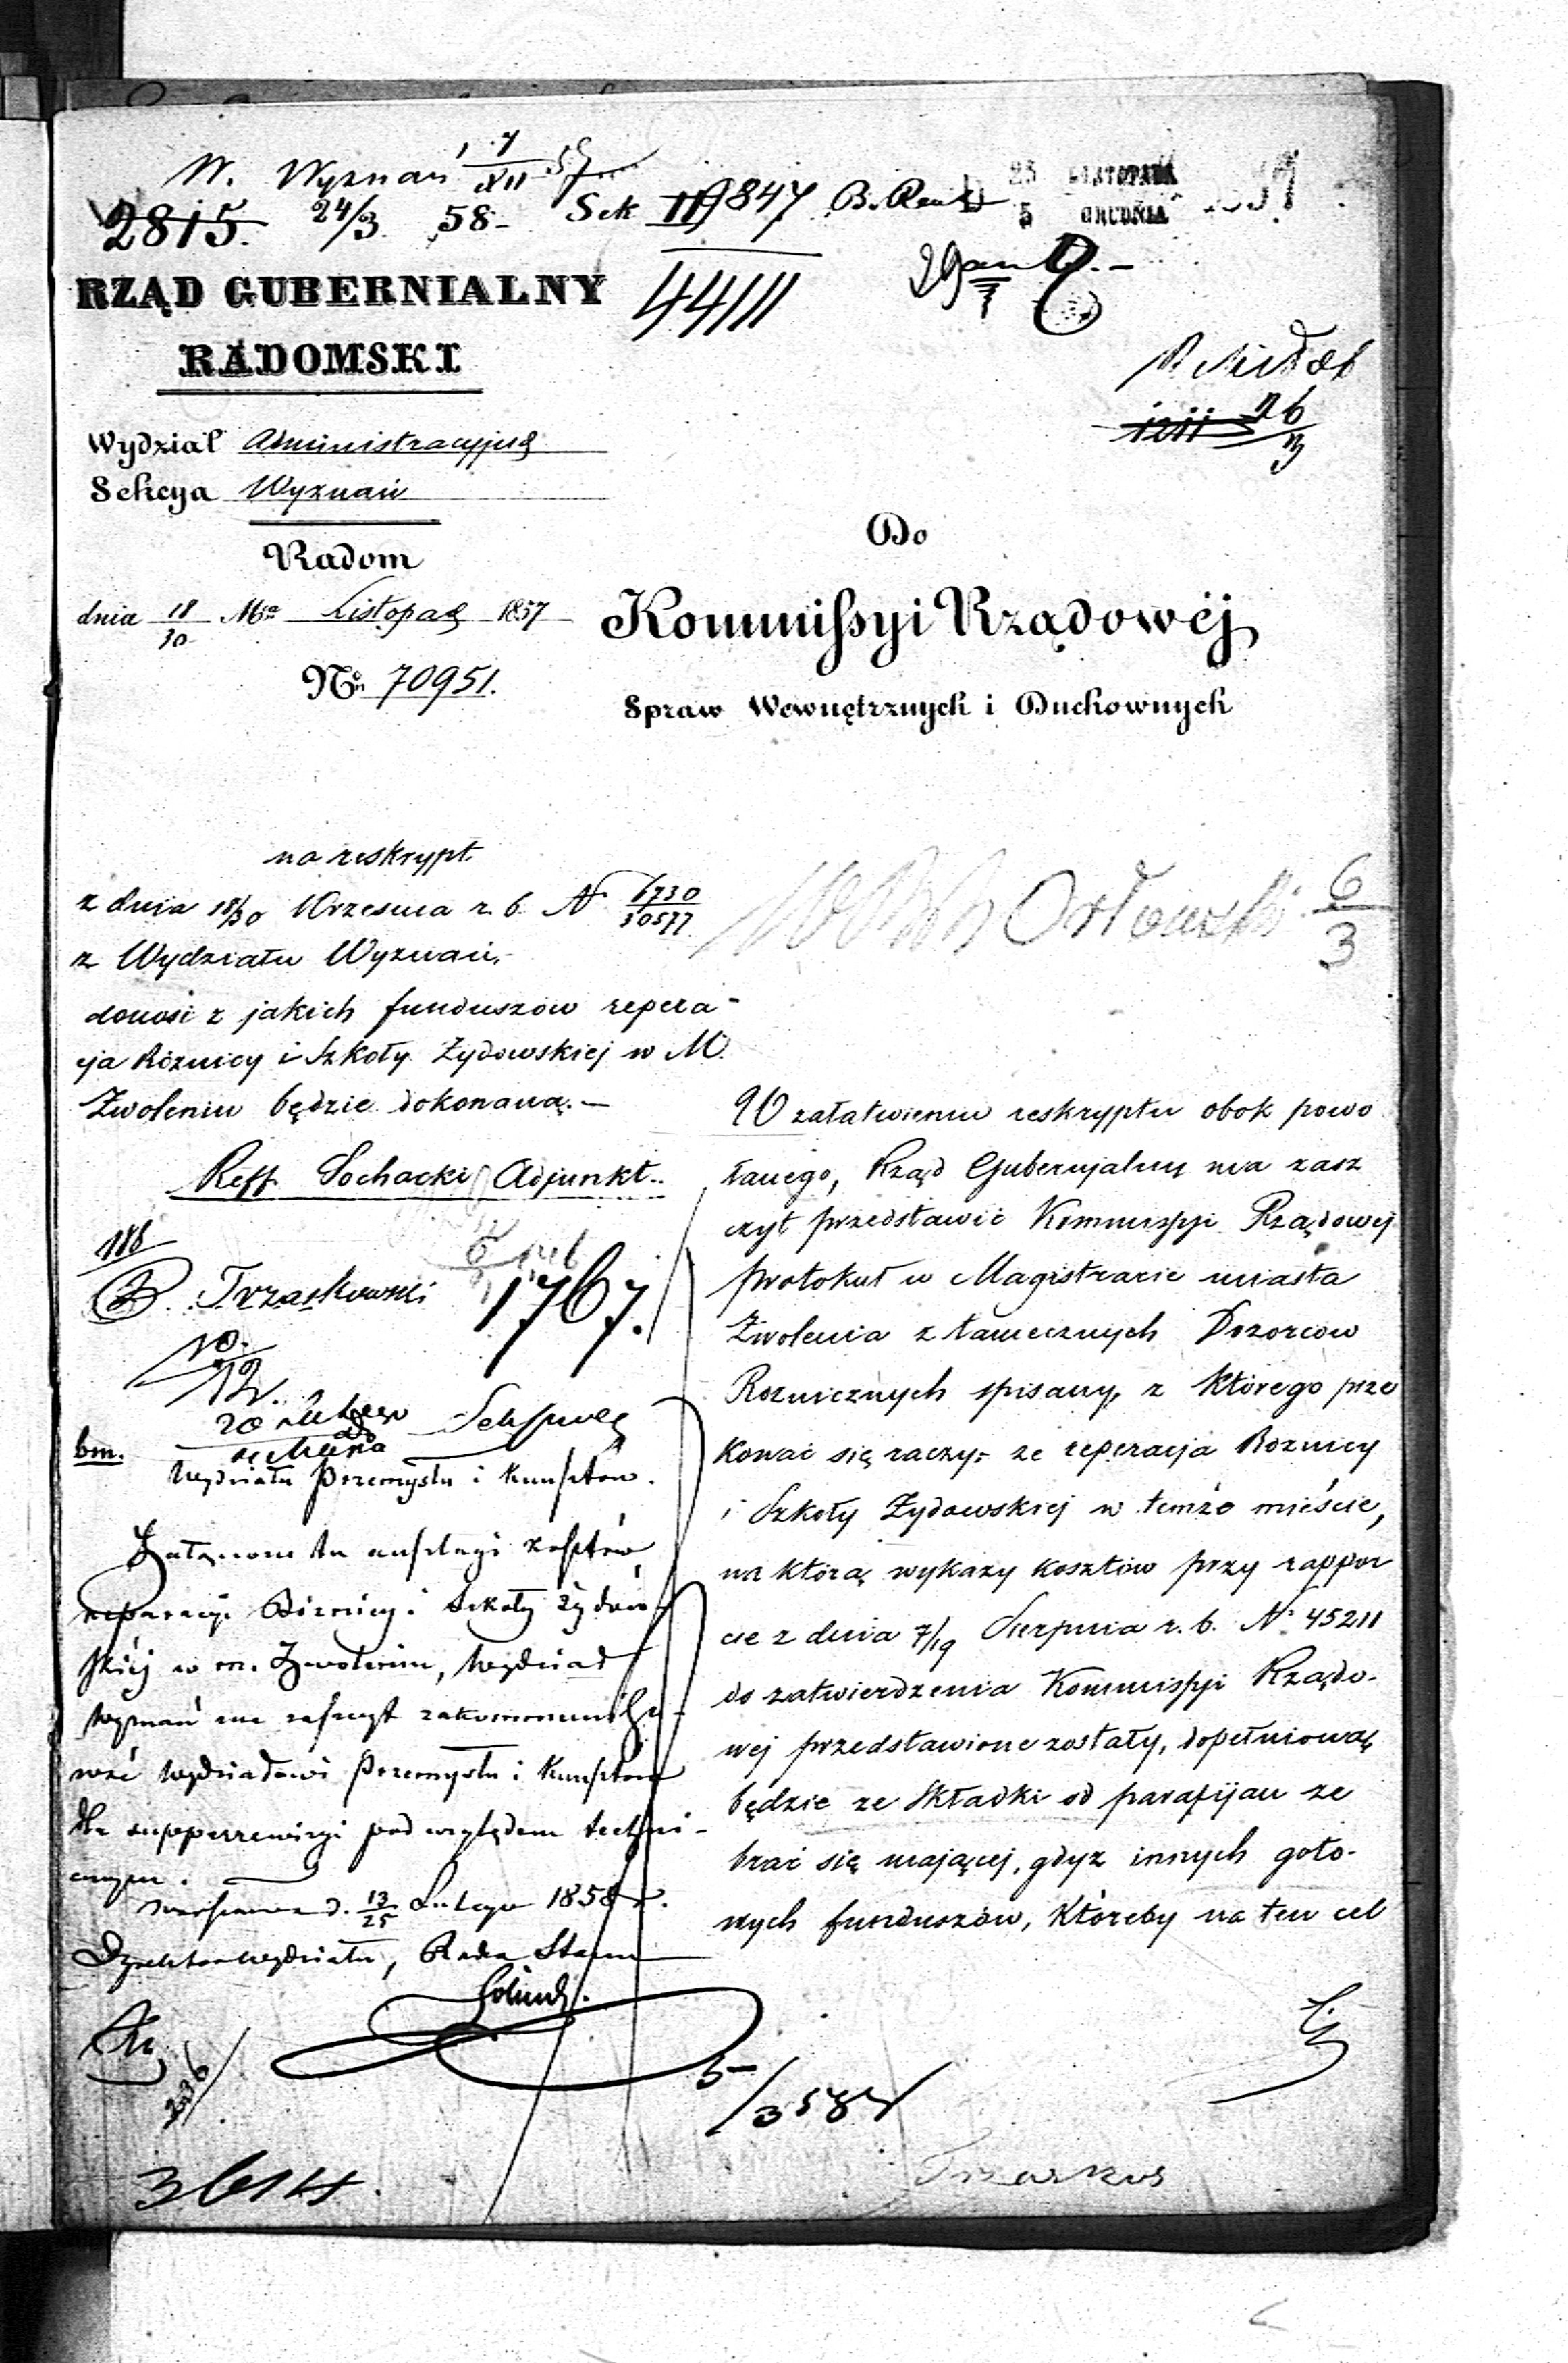 W. Wyznań 7/XII 57
2815. 24/3 58 - Sek III 9847
25 LISTOPADA
5 GRUDNIA
44111
RZĄD GUBERNIALNY
RADOMSKI
Wydział Administracyjny
Sekcya Wyznań
Radom
dnia 18/30 Mca Listopad 1857
No 70951.
Do
Kommissyi Rządowéj
Spraw Wewnętrznych i Duchownych
26/3
na reskrypt
z dnia 18/30 Września r. b. N 6730/30577
z Wydziału Wyznań.
donosi z jakich funduszów repera-
cja Bóżnicy i Szkoły Żydowskiej w M.
Zwoleniu będzie dokonaną.—
Reff. Sochacki Adjunkt..
Orłowski 6/3
118
Trzaskowski
1767.
10/12.
bm.
Wydziału Przemysłu i Kunsztów.
Załączone tu anszlagi kosztów
reparacji Bóżnicy i Szkoły żydow-
skiéj w m. Zwoleniu, Wydział
Wyznań ma zaszczyt zakommuniko-
wać Wydziałowi Przemysłu i Kunsztów
dla superrewizyi pod względem techni-
cznym.
Warszawa d. 13/25 Lutego 1858 r.
Dyrektor Wydziału, Radca Stanu
W załatwieniu reskryptu obok powo
łanego, Rząd Gubernjalny ma zasz
czyt przedstawić Kommissyi Rządowej
protokuł w Magistracie miasta
Zwolenia z tamecznych Dozorcow
Boznicznych spisany, z którego prze
konać się raczy, ze reperacja Boznicy
i Szkoły Żydowskiej w temże mieście,
na którą wykazy kosztów przy rappor
cie z dnia 7/19 Sierpnia r. b. N. 45211
do zatwierdzenia Kommissyi Rządo-
wej przedstawione zostały, dopełnioną
będzie ze składki od parafijan ze
brać się mającej, gdyz innych goto-
wych funduszów, któreby na ten cel
3614